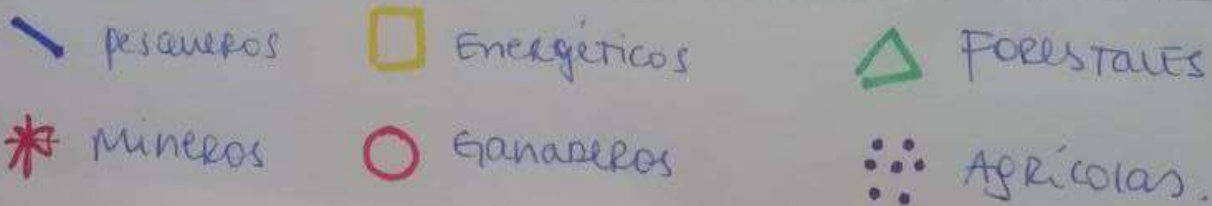 pesqueros Energéticos Forestales
Mineros Ganaderos Agrícolas.